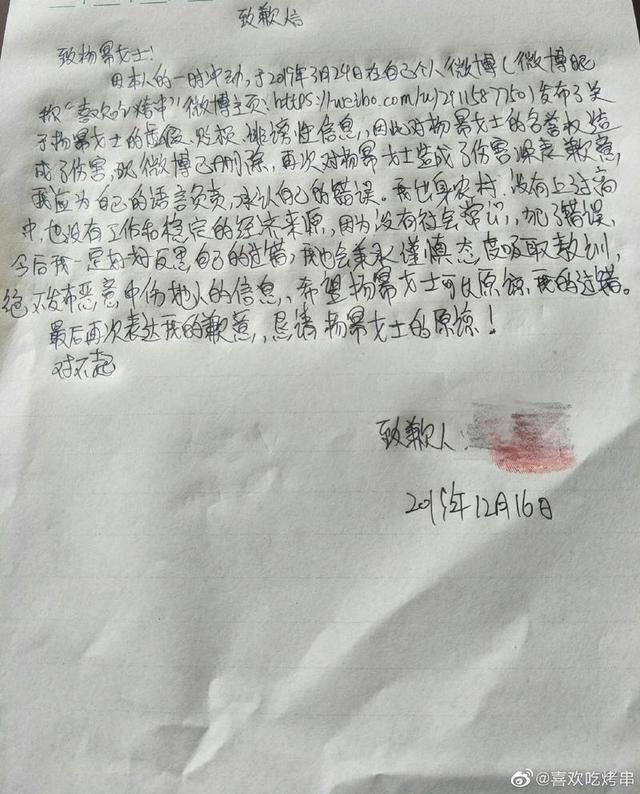 致歉信
致杨幂女士：
因本人的一时冲动，于2019年3月24日在自己个人微博（微博昵
称“喜欢吃烤串”微博主页：https://weibo.com/u/2911587750）发布了关
于杨幂女士的虚假、贬损、诽谤性信息，因此对杨幂女士的名誉权造
成了伤害，现微博已删除，再次对杨幂女士造成了伤害深表歉意，
我应为自己的语言负责，承认自己的错误。我出身农村，没有上过高
中，也没有工作和稳定的经济来源，因为没有社会常识，犯了错误，
今后我一定好好反思自己的过错，我也会秉承谨慎态度吸取教训，
绝不发布恶意中伤他人的信息，希望杨幂女士可以原谅我的过错。
最后再次表达我的歉意，恳请杨幂女士的原谅！
对不起
致歉人：
2019年12月16日
@喜欢吃烤串